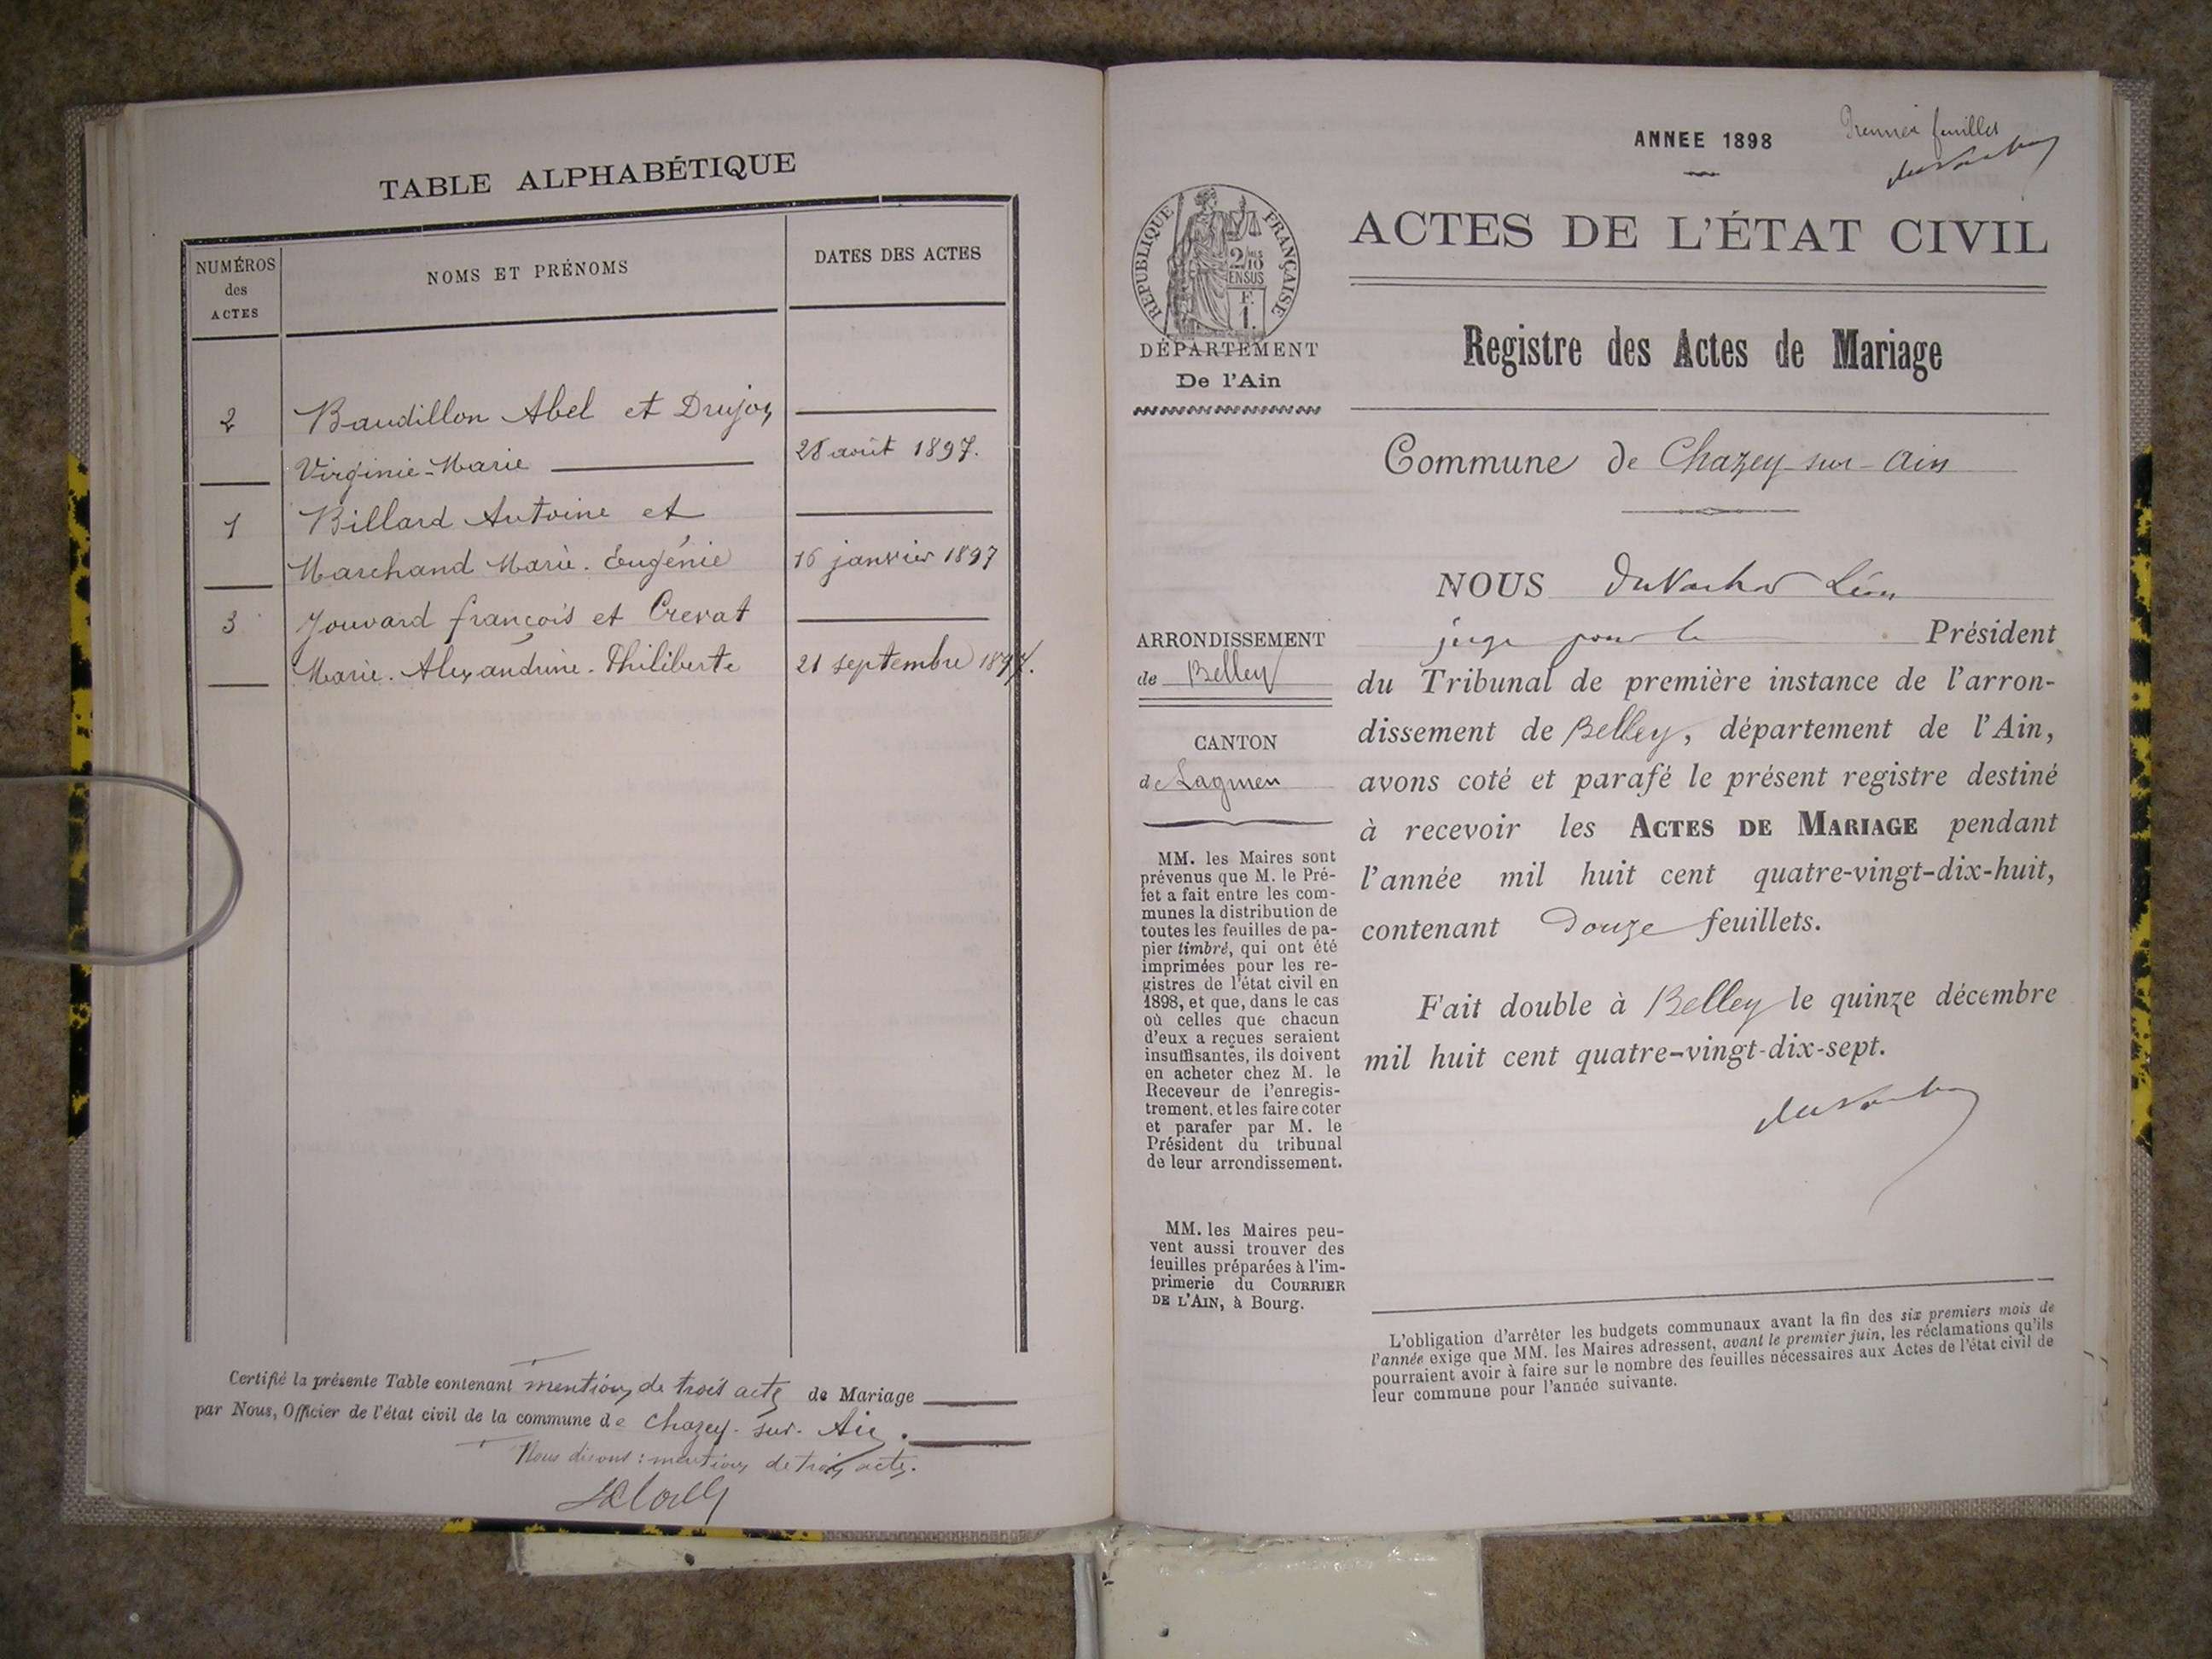 TABLE ALPHABÉTIQUE
NUMÉROS
des
ACTES
NOMS ET PRÉNOMS
DATES DES ACTES
2 Baudillon Abel et Drujon
Virginie-Marie
28 août 1897.
1 Billard Antoine et
Marchand Marie. Eugénie 16 janvier 1897
3 Jouvard françois et Crevat
Marie. Alexandrine. Philiberte 21 septembre 1897.
Certifié la présente Table contenant mention de trois actes de Mariage
par Nous, Officier de l'état civil de la commune de Chazey-sur-Ain.
Nous disons : mention de trois actes.
ANNEE 1898
Premier feuillet
ACTES DE L'ÉTAT CIVIL
RÉPUBLIQUE FRANÇAISE
2/10
EN SUS
F.
1.
DÉPARTEMENT
De l'Ain
Registre des Actes de Mariage
Commune de Chazey-sur-Ain
NOUS Léon
ARRONDISSEMENT
de Belley
CANTON
de Lagnieu
juge pour le Président
du Tribunal de première instance de l'arron-
dissement de Belley, département de l'Ain,
avons coté et parafé le présent registre destiné
à recevoir les ACTES DE MARIAGE pendant
l'année mil huit cent quatre-vingt-dix-huit,
contenant Douze feuillets.
Fait double à Belley le quinze décembre
mil huit cent quatre-vingt-dix-sept.
MM. les Maires sont
prévenus que M. le Pré-
fet a fait entre les com-
munes la distribution de
toutes les feuilles de pa-
pier timbré, qui ont été
imprimées pour les re-
gistres de l'état civil en
1898, et que, dans le cas
où celles que chacun
d'eux a reçues seraient
insuffisantes, ils doivent
en acheter chez M. le
Receveur de l'enregis-
trement, et les faire coter
et parafer par M. le
Président du tribunal
de leur arrondissement.
MM. les Maires peu-
vent aussi trouver des
feuilles préparées à l'im-
primerie du COURRIER
DE L'AIN, à Bourg.
L'obligation d'arrêter les budgets communaux avant la fin des six premiers mois de
l'année exige que MM. les Maires adressent, avant le premier juin, les réclamations qu'ils
pourraient avoir à faire sur le nombre des feuilles nécessaires aux Actes de l'état civil de
leur commune pour l'année suivante.